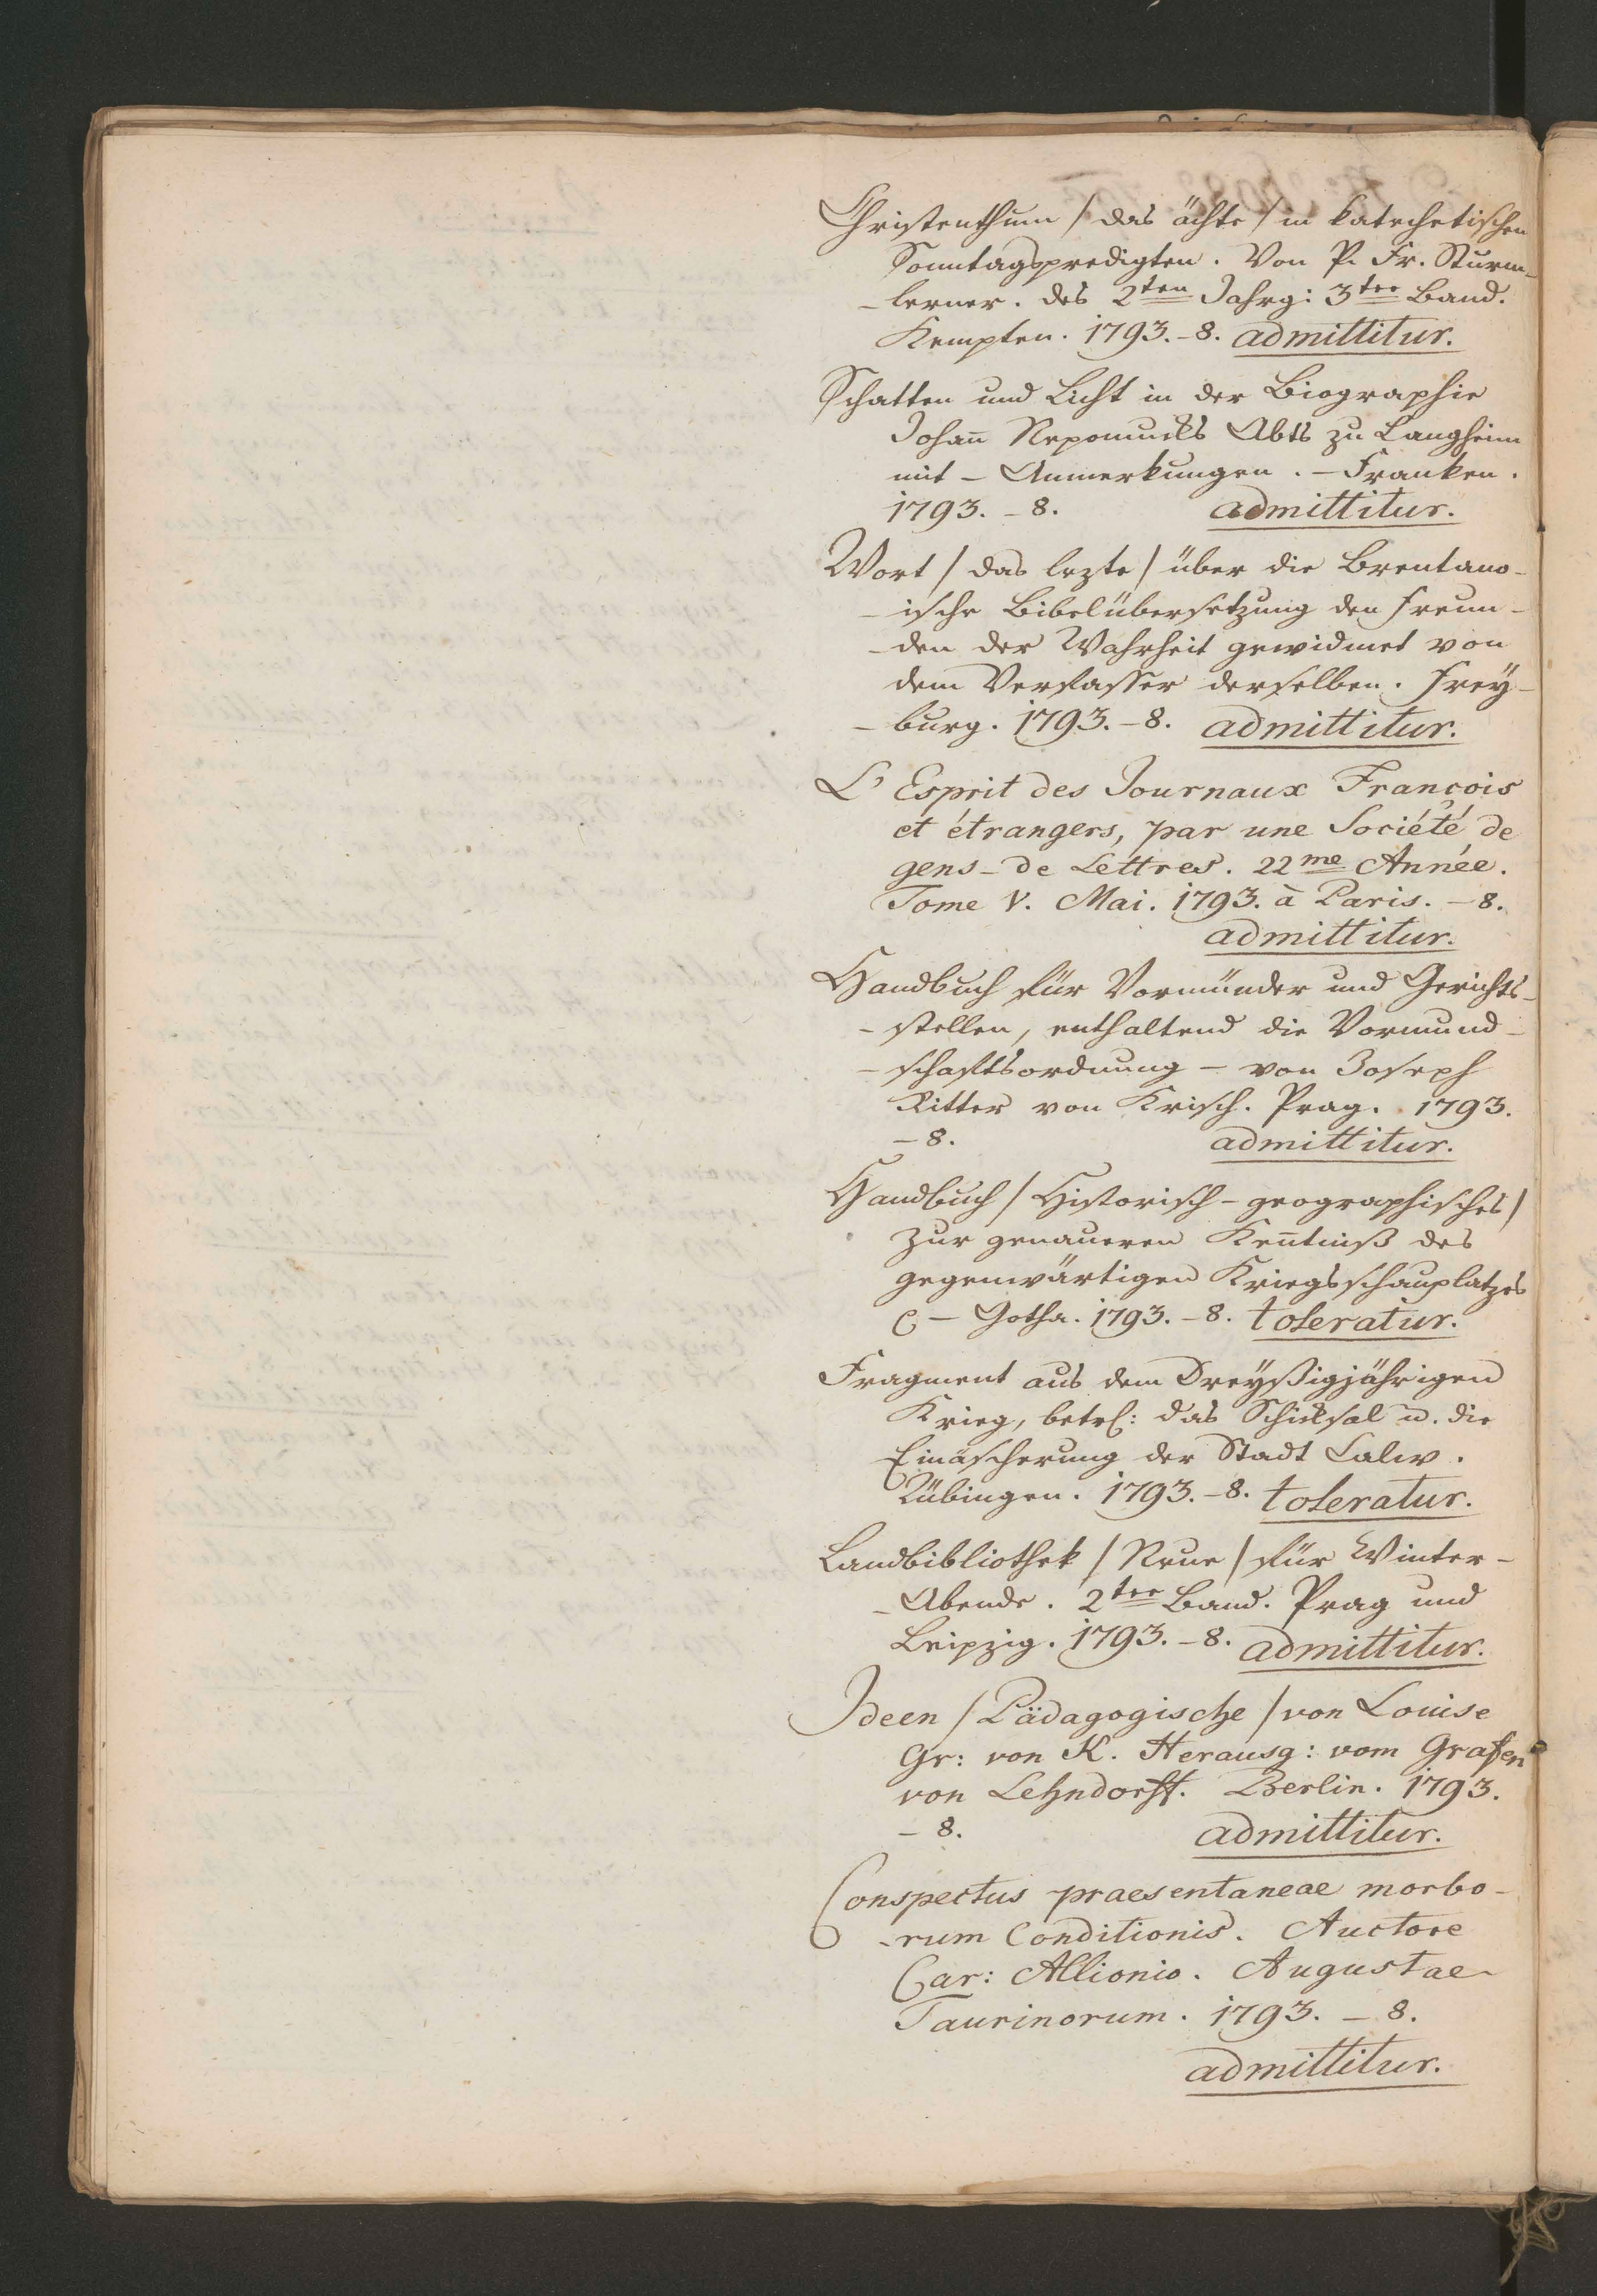 Christenthum / das ächte / in katechetischen
Sonntagspredigten. Von P. Fr. Sturm-
-lerner. des 2ten Jahrg: 3ter Band.
Kempten. 1793. - 8. admittitur.
Schatten und Licht in der Biographie
Johañ Nepomucks Abts zu Langheim
mit - Anmerkungen. - Franken.
1793. - 8. admittitur.
Wort / das lezte / über die Brentano-
-ische Bibelübersetzung den Freun-
-den der Wahrheit gewidmet von
dem Verfasser derselben. Frey-
-burg. 1793. - 8. admittitur.
L'Esprit des Journaux François
et étrangers, par une Société de
gens - de Lettres. 22me Année.
Tome V. Mai. 1793. à Paris. - 8.
admittitur.
Handbuch für Vormünder und Gerichts-
-stellen, enthaltend die Vormund-
-schaftsordnung - von Joseph
Ritter von Krisch. Prag. 1793.
- 8. admittitur.
Handbuch / Historisch - geographisches /
zur genaueren Keñtniß des
gegenwärtigen Kriegsschauplatzes
- Gotha. 1793. - 8. toleratur.
Fragment aus dem Dreyßigjährigen
Krieg, betrf: das Schicksal u. die
Einäscherung der Stadt Calw.
Tübingen. 1793. - 8. toleratur.
Landbibliothek / Neue / für Winter-
-Abende. 2ter Band. Prag und
Leipzig. 1793. - 8. admittitur.
Ideen / Pädagogische / von Louise
Gr: von K. Herausg: vom Grafen
von Lehndorff. Berlin. 1793.
- 8. admittitur.
Conspectus praesentaneae morbo-
-rum Conditionis. Auctore
Car: Allionio. Augustae
Taurinorum. 1793. - 8.
admittitur.